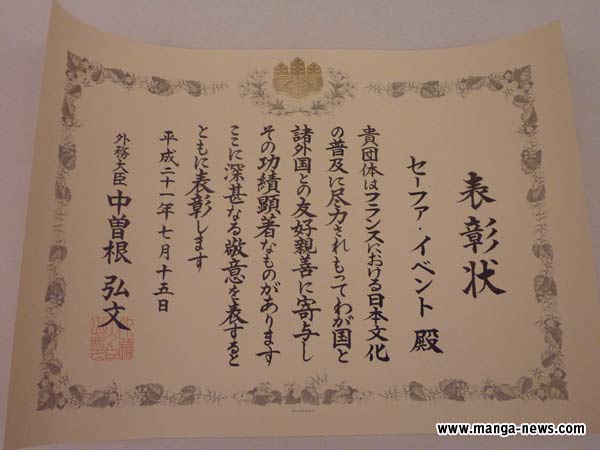 表彰状
セーファ・イベント 殿
貴団体はフランスにおける日本文化
の普及に尽力されもってわが国と
諸外国との友好親善に寄与し
その功績顕著なものがあります
ここに深甚なる敬意を表すると
ともに表彰します
平成二十一年七月十五日
外務大臣 中曽根 弘文
www.manga-news.com